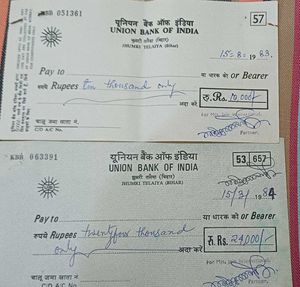 KBB 051361
यूनियन बैंक ऑफ इंडिया
57
UNION BANK OF INDIA
झुमरी तलैया (बिहार)
JHUMRI TELAIYA (Bihar)
15-8- 1983
Pay to
या धारक को or Bearer
रुपये Rupees Ten thousand only
अदा करें
रु.Rs. 10,000/-
चालू जमा खाता नं.
C/D A/C No.
Partner.
KBB 063391
यूनियन बैंक ऑफ इंडिया
53 652
UNION BANK OF INDIA
झुमरी तलैया (बिहार)
JHUMRI TELAIYA (BIHAR)
15/3/ 1984
Pay to
या धारक को or Bearer
रुपये Rupees twentyfour thousand
only
अदा करें
रु. Rs. 24,000/-
चालू जमा खाता नं.
C/D A/C No.
Partner.